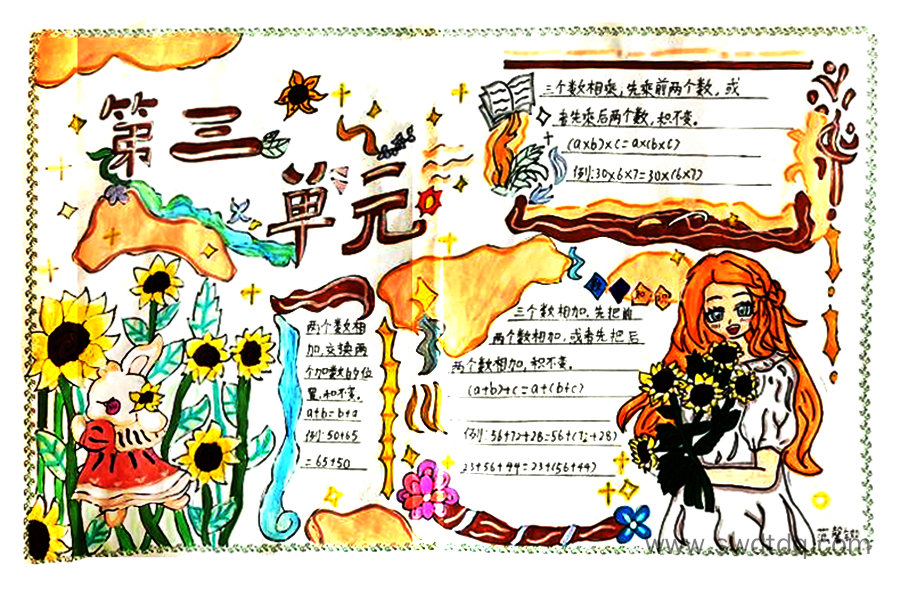 第三
单元
三个数相乘,先乘前两个数,或
者先乘后两个数,积不变。
(a×b)×c=a×(b×c)
例:30×6×7=30×(6×7)
两个数相
加,交换两
个加数的位
置,和不变。
a+b=b+a
例:50+65
=65+50
三个数相加,先把前
两个数相加,或者先把后
两个数相加,积不变。
(a+b)+c=a+(b+c)
例:56+72+28=56+(72+28)
23+56+44=23+(56+44)
www.swdtdq.com